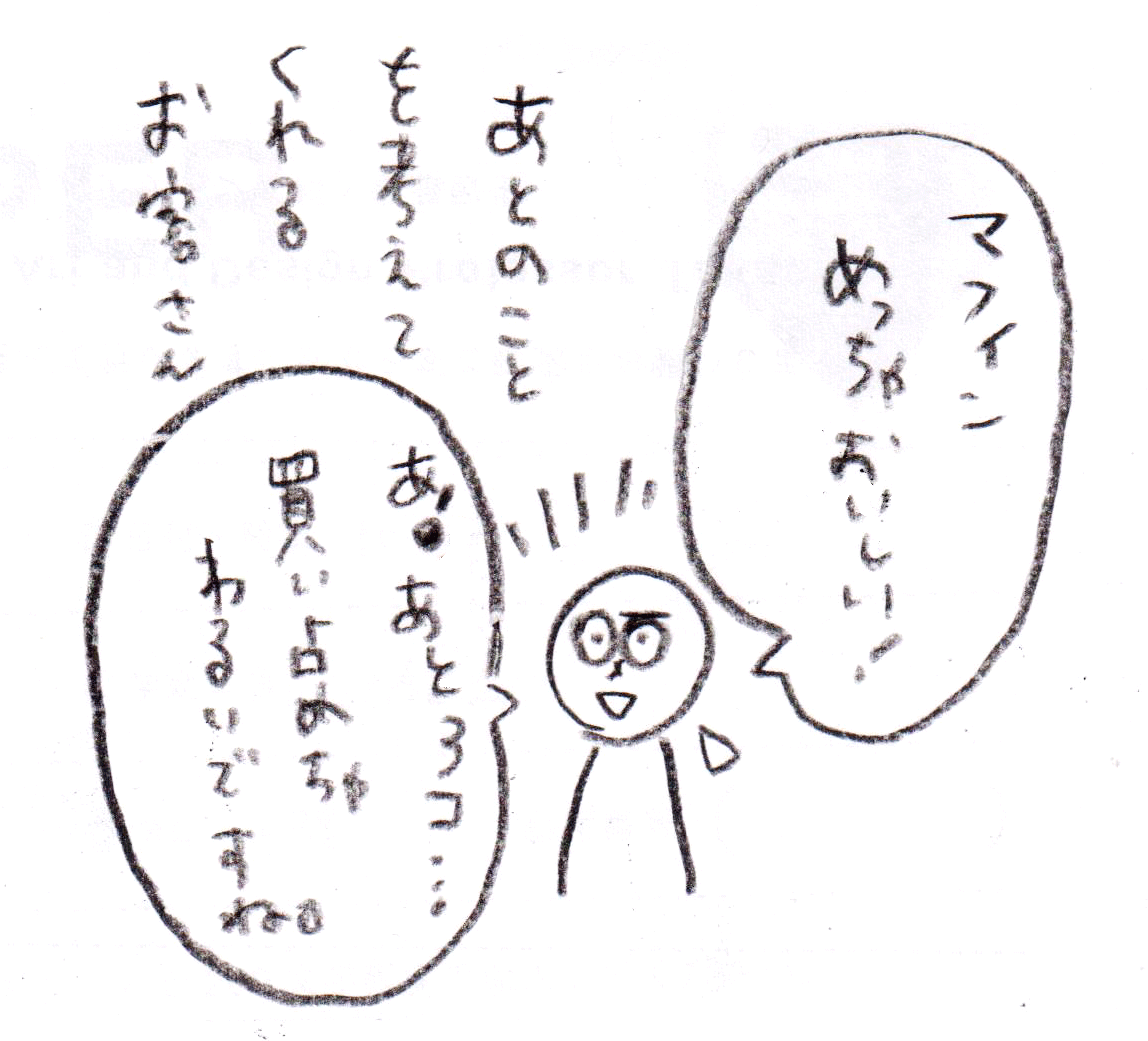 マフィン
めっちゃ
おいしい!
あとのこと
を考えて
くれる
お客さん
あ。あと3コ…
買い占めちゃ
わるいですね